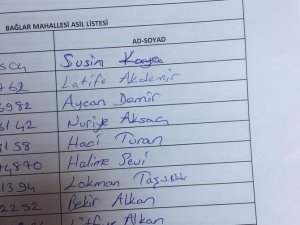 BAĞLAR MAHALLESİ ASİL LİSTESİ
AD-SOYAD
504 Susin Kaya
762 Latife Akdemir
6982 Aycan Demir
3142 Nuriye Aksaç
3158 Haci Turan
4870 Halime Sevi
1394 Lokman
2252 Bekir Alkan
Alkan